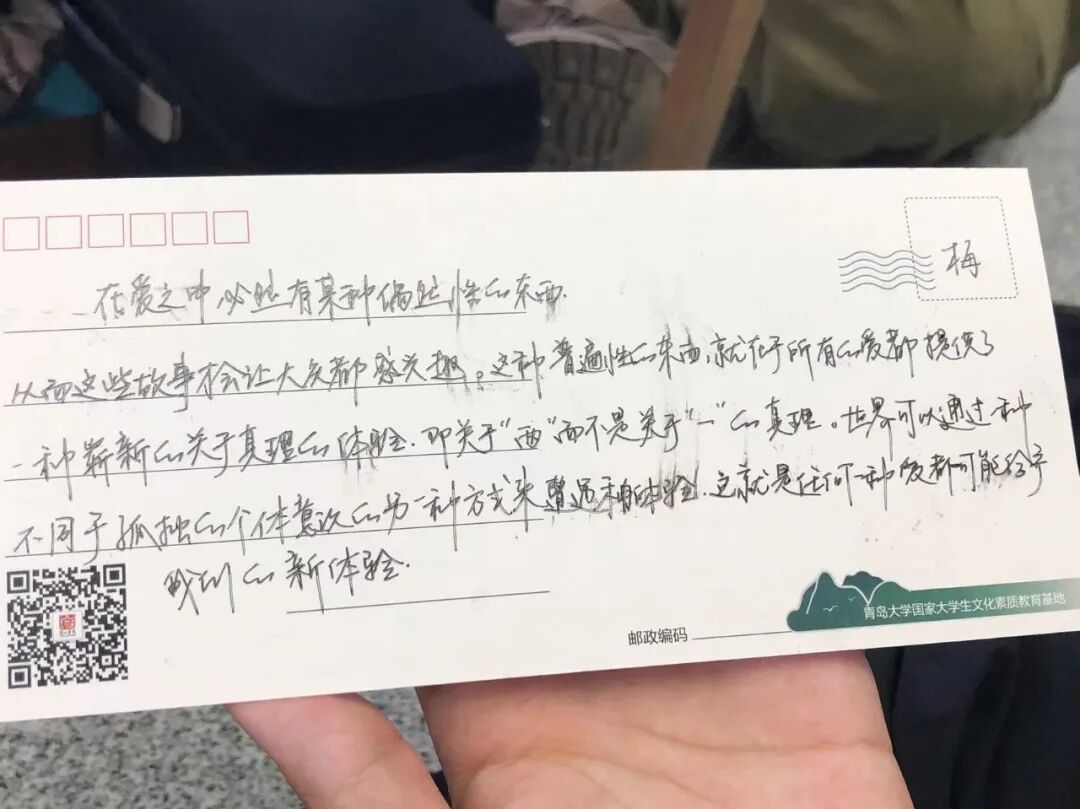 梅
在爱之中,必然有某种偶然性的东西.
从而这些故事才会让大众都感兴趣。这种普遍性的东西,就在于所有的爱都提供了
一种崭新的关于真理的体验.即关于“两”而不是关于“一”的真理。世界可以通过一种
不同于孤独的个体意识的另一种方式来遭遇和体验.这就是任何一种爱都可能给予
我们的新体验.
邮政编码
青岛大学国家大学生文化素质教育基地